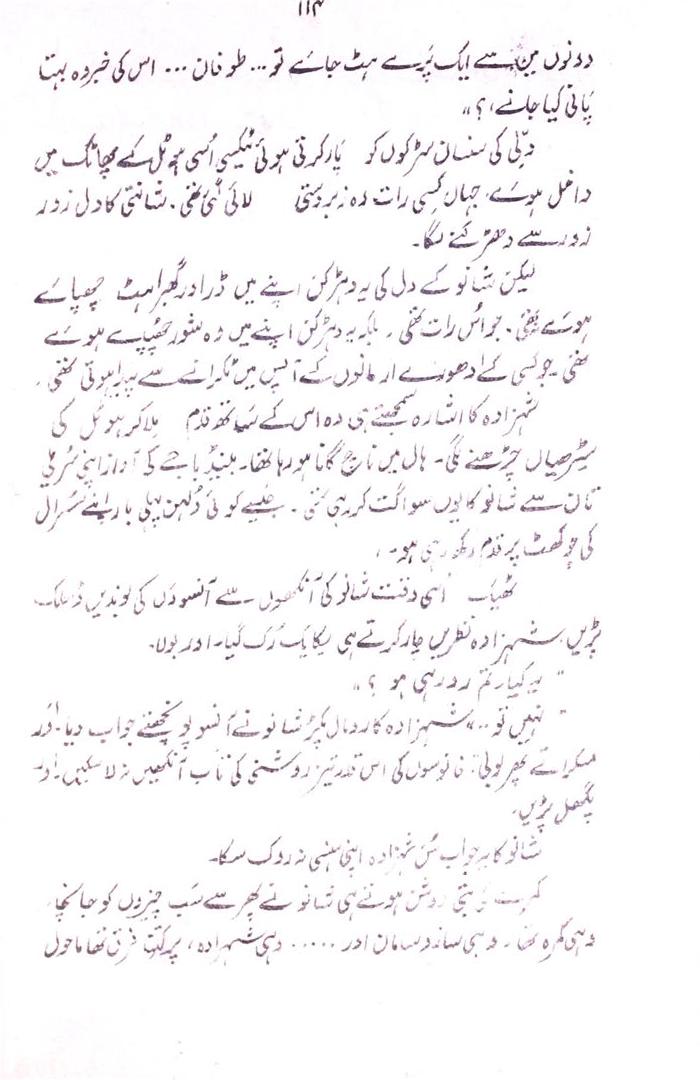 ۱۱۴
دونوں میں سے ایک پُرے ہٹ جائے تو... طوفان ... اس کی خبر وہ بہتا
پانی کیا جانے،؟"
دہلی کی سنسان سڑکوں کو پار کرتی ہوئی ٹیکسی اُسی ہوٹل کے پھاٹک میں
داخل ہوئے، جہاں کسی رات وہ زبردستی لائی گئی تھی۔ شانتی کا دل زور
زور سے دھڑکنے لگا۔
لیکن شانو کے دل کی یہ دھڑکن اپنے میں ڈر اور گھبراہٹ چھپائے
ہوئے تھی۔ جو اُس رات تھی۔ بلکہ یہ دھڑکن اپنے میں وہ شور چھپائے ہوئے
تھی۔ جو کسی کے ادھورے ارمانوں کے آپس میں ٹکرانے سے پیدا ہوتی تھی۔
شہزادہ کا اشارہ سمجھتے ہی وہ اس کے ساتھ قدم ملا کر ہوٹل کی
سیڑھیاں چڑھنے لگی۔ ہال میں ناچ گانا ہو رہا تھا۔ بینڈ باجے کی آواز اپنی سُریلی
تان سے شانو کا یوں سواگت کر رہی تھی۔ جیسے کوئی دُلہن پہلی بار اپنے سُسرال
کی چوکھٹ پر قدم رکھ رہی ہو۔
ٹھیک اُسی وقت شانو کی آنکھوں سے آنسوؤں کی بوندیں ڈھلک
پڑیں۔ شہزادہ نظریں چار کرتے ہی یکایک رُک گیا۔ اور بولا۔
" یہ کیا۔ تم رو رہی ہو ؟"
" نہیں تو..." شہزادہ کا رومال پکڑ شانو نے آنسو پونچھتے جواب دیا۔ اور
مسکراتے پھر بولی۔ فانوسوں کی اس قدر تیز روشنی کی تاب آنکھیں نہ لا سکیں۔ اور
پگھل پڑیں۔
شانو کا یہ جواب سُن شہزادہ اپنی ہنسی نہ روک سکا۔
کمرے کی بتی روشن ہوتے ہی شانو نے پھر سے سب چیزوں کو جانچا۔
وہی کمرہ تھا۔ وہی ساز و سامان اور ..... وہی شہزادہ، پر کتنا فرق تھا ماحول